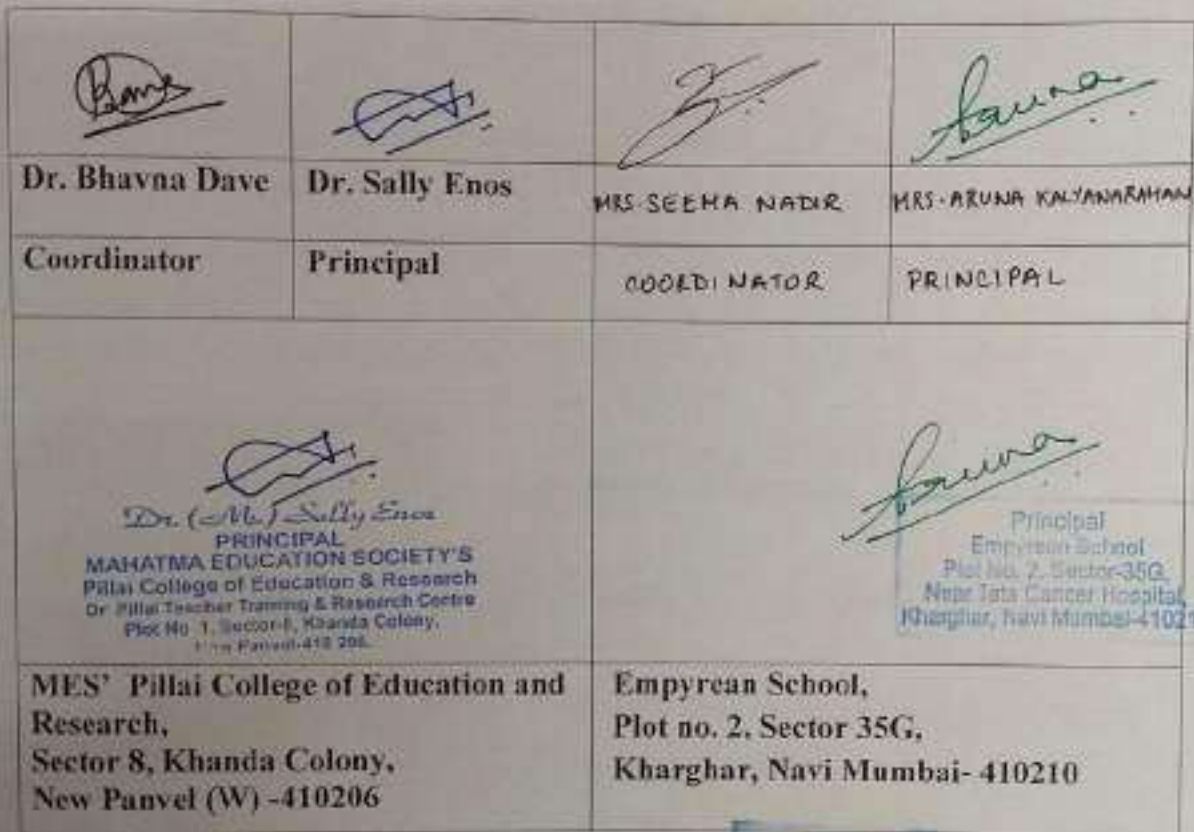 Dr. Bhavna Dave
Dr. Sally Enos
MRS. SEEMA NADIR
MRS. ARUNA KALYANARAMAN
Coordinator
Principal
COORDINATOR
PRINCIPAL
Aruna
Dr. (Mrs.) Sally Enos
PRINCIPAL
MAHATMA EDUCATION SOCIETY'S
Pillai College of Education & Research
Dr. Pillai Teacher Training & Research Centre
Plot No. 1, Sector-8, Khanda Colony,
Panvel-410 206.
Aruna
Principal
Empyrean School
Plot No. 2, Sector-35G,
Near Tata Cancer Hospital,
Kharghar, Navi Mumbai-41021
MES' Pillai College of Education and
Research,
Sector 8, Khanda Colony,
New Panvel (W) -410206
Empyrean School,
Plot no. 2, Sector 35G,
Kharghar, Navi Mumbai- 410210